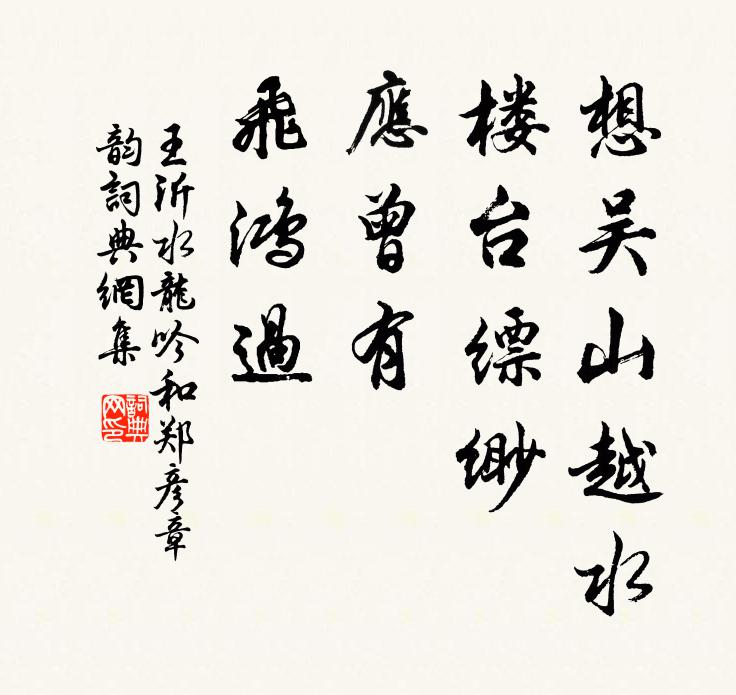 想吴山越水
楼台缥缈
應曾有
飛鴻過
王沂水龍吟和郑彦章
韵詞典網集
詞典网印